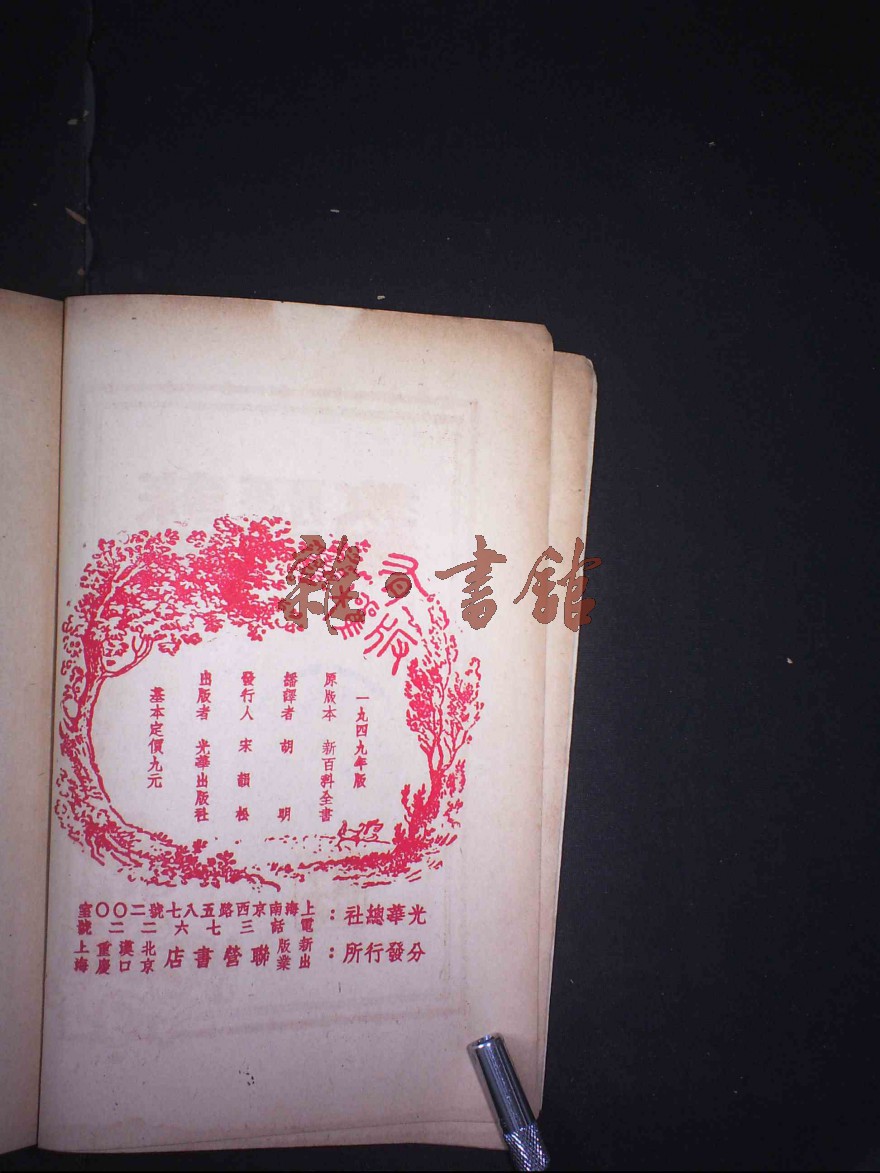 雜·書館
一九四九年版
原版本 新百科全書
繙譯者 胡 明
發行人 宋 松
出版者 光華出版社
基本定價九元
光華總社：上海南京西路五八七號二〇〇室
電話三七六二二號
分發行所：新出版業聯營書店 北京 漢口 重慶 上海